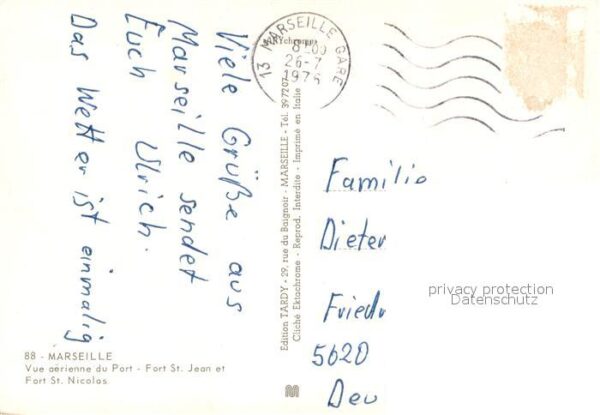 Viele Grüße aus
Marseille sendet
Euch Ulrich.
Das Wetter ist einmalig
88 - MARSEILLE
Vue aérienne du Port - Fort St. Jean et
Fort St. Nicolas
Edition TARDY - 29, rue du Baignoir - MARSEILLE - Tél. 397207
Cliché Ektachrome - Reprod. Interdite - Imprimé en Italie
13 MARSEILLE GARE
26-7
1976
Familie
Dieter
Friedr
5620
Deu
privacy protection
Datenschutz